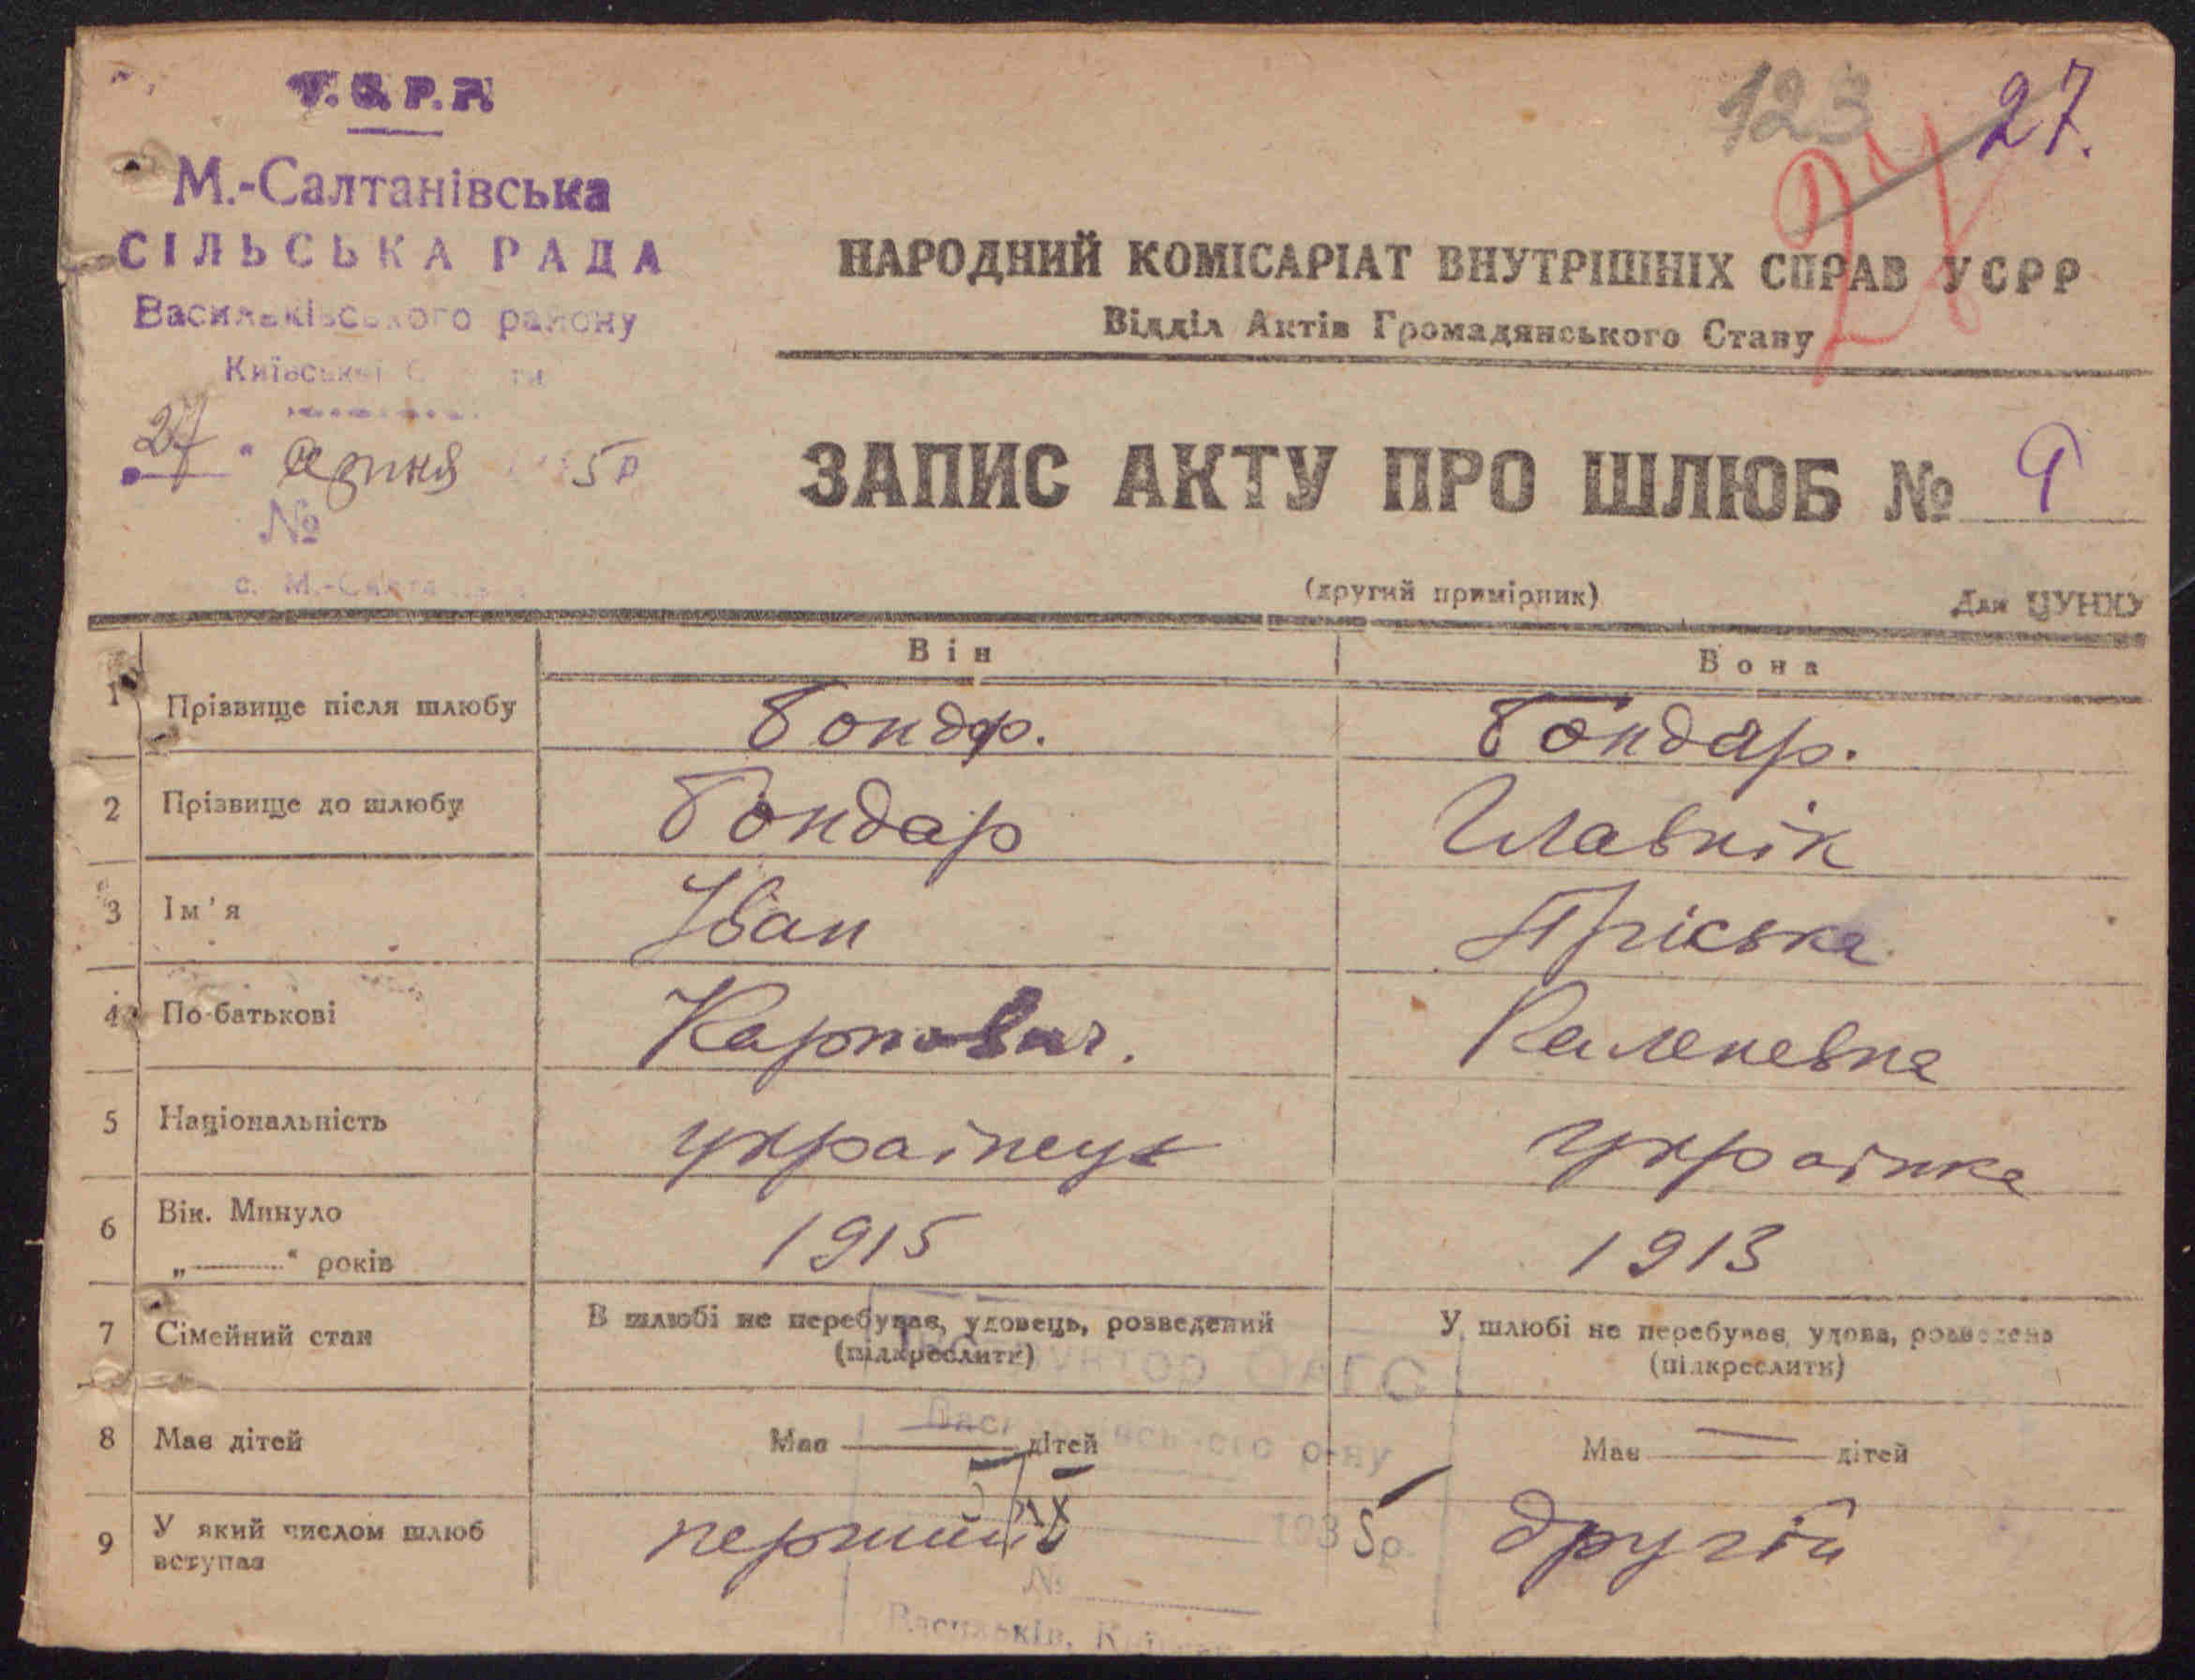 У.С.Р.Р.
М.-Салтанівська
СІЛЬСЬКА РАДА
Васильківського району
Київської
27 " 5 р
№
с. М.-Салтанівка
123 27.
27
НАРОДНИЙ КОМІСАРІАТ ВНУТРІШНІХ СПРАВ УСРР
Відділ Актів Громадянського Стану
ЗАПИС АКТУ ПРО ШЛЮБ № 9
(другий примірник) Для ЦУНХУ
Він Вона
1 Прізвище після шлюбу Бондр. Бондар.
2 Прізвище до шлюбу Бондар Главнік
3 Ім'я Іван Пріська
4 По-батькові Карпович. Каленевна
5 Національність українець українка
6 Вік. Минуло 1915 1913
„———" років
7 Сімейний стан В шлюбі не перебував, удовець, розведений У шлюбі не перебував, удова, розведена
(підкреслити) (підкреслити)
Інструктор ОАГС
Васильківського р-ну
8 Має дітей Має — дітей Має — дітей
9 У який числом шлюб перший другій
вступав
5/IX 1935р.
№
Васильків, Київськ